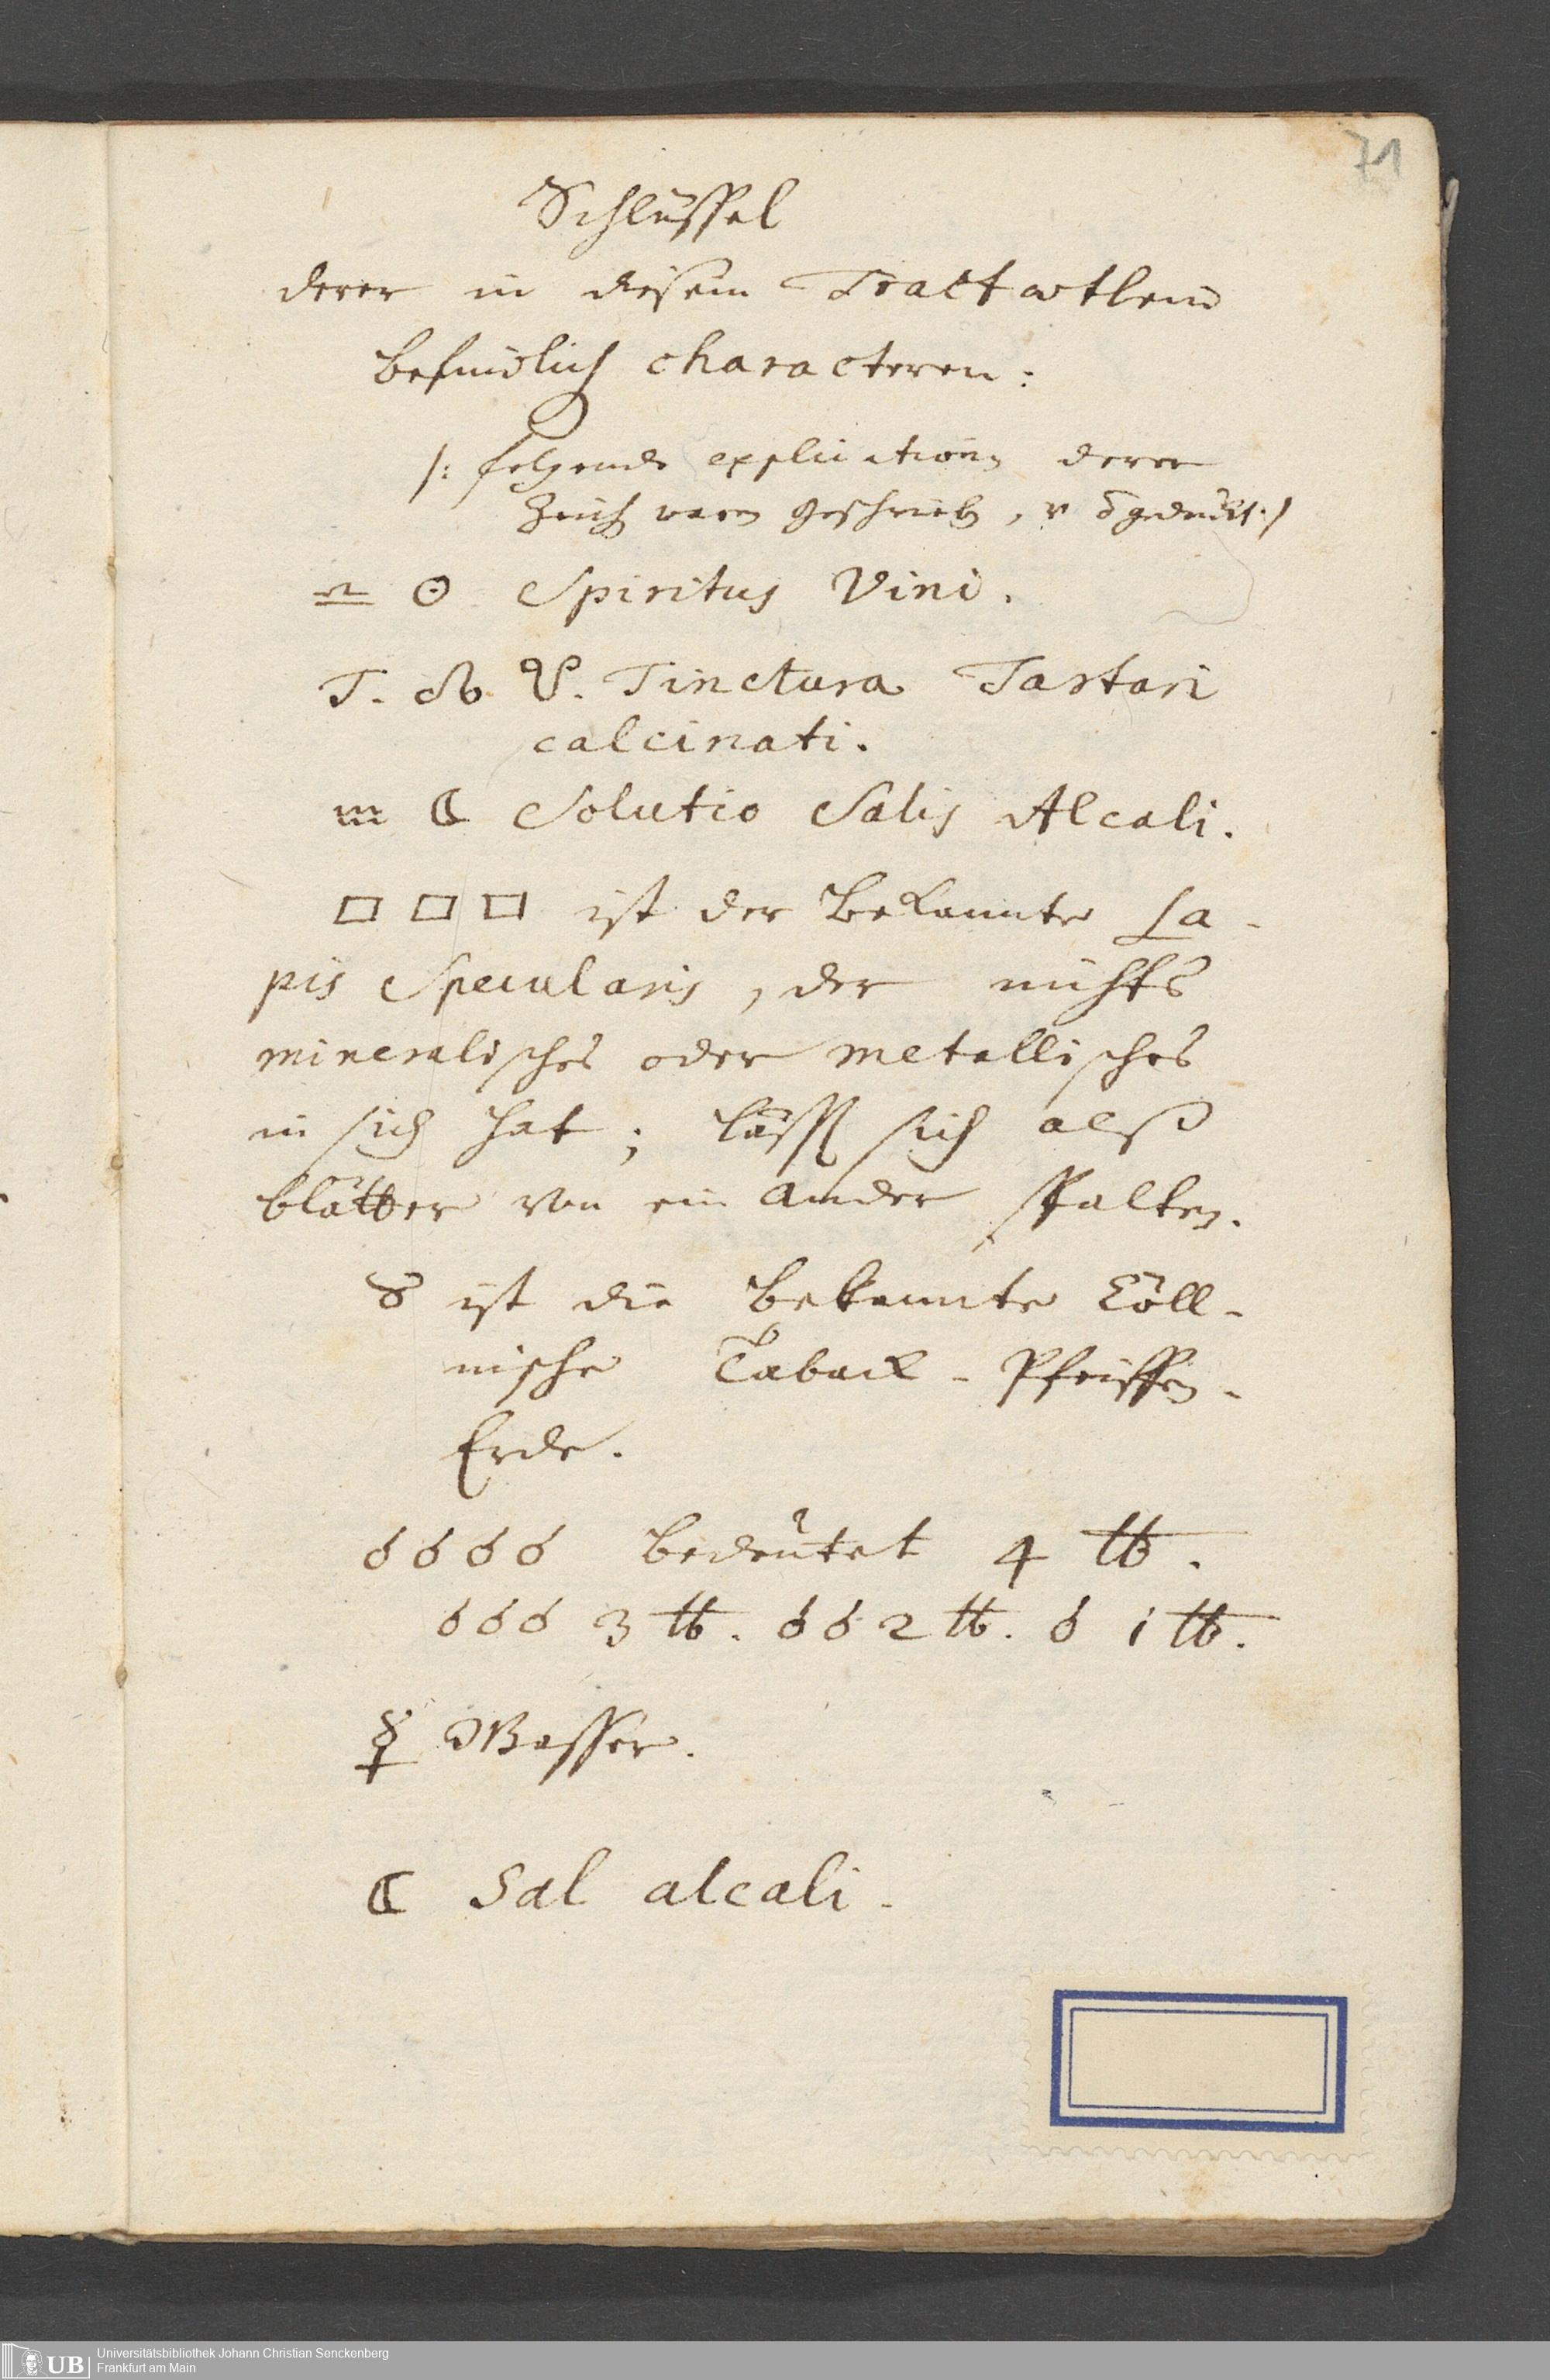 71
Schlüssel
derer in diesem Tractatlein
befindlich characteren:
/: folgende explication derer
Zeich waren geschrieb, v gedruckt :/
♎ ☉ Spiritus Vini.
T. ♉. Tinctura Tartari
calcinati.
m ☾ Solutio Salis Alcali.
□ □ □ ist der bekannte La-
pis Specularis, der nichts
mineralisches oder metallisches
in sich hat; läss sich alß
blätter von ein ander spalten.
8 ist die bekannte Cöll-
nische Taback-Pfeiffen-
Erde.
6 6 6 6 bedeutet 4 ℔.
6 6 6 3 ℔. 6 6 2 ℔. 6 1 ℔.
☿ Wasser.
☾ Sal alcali.
UB
Universitätsbibliothek Johann Christian Senckenberg
Frankfurt am Main